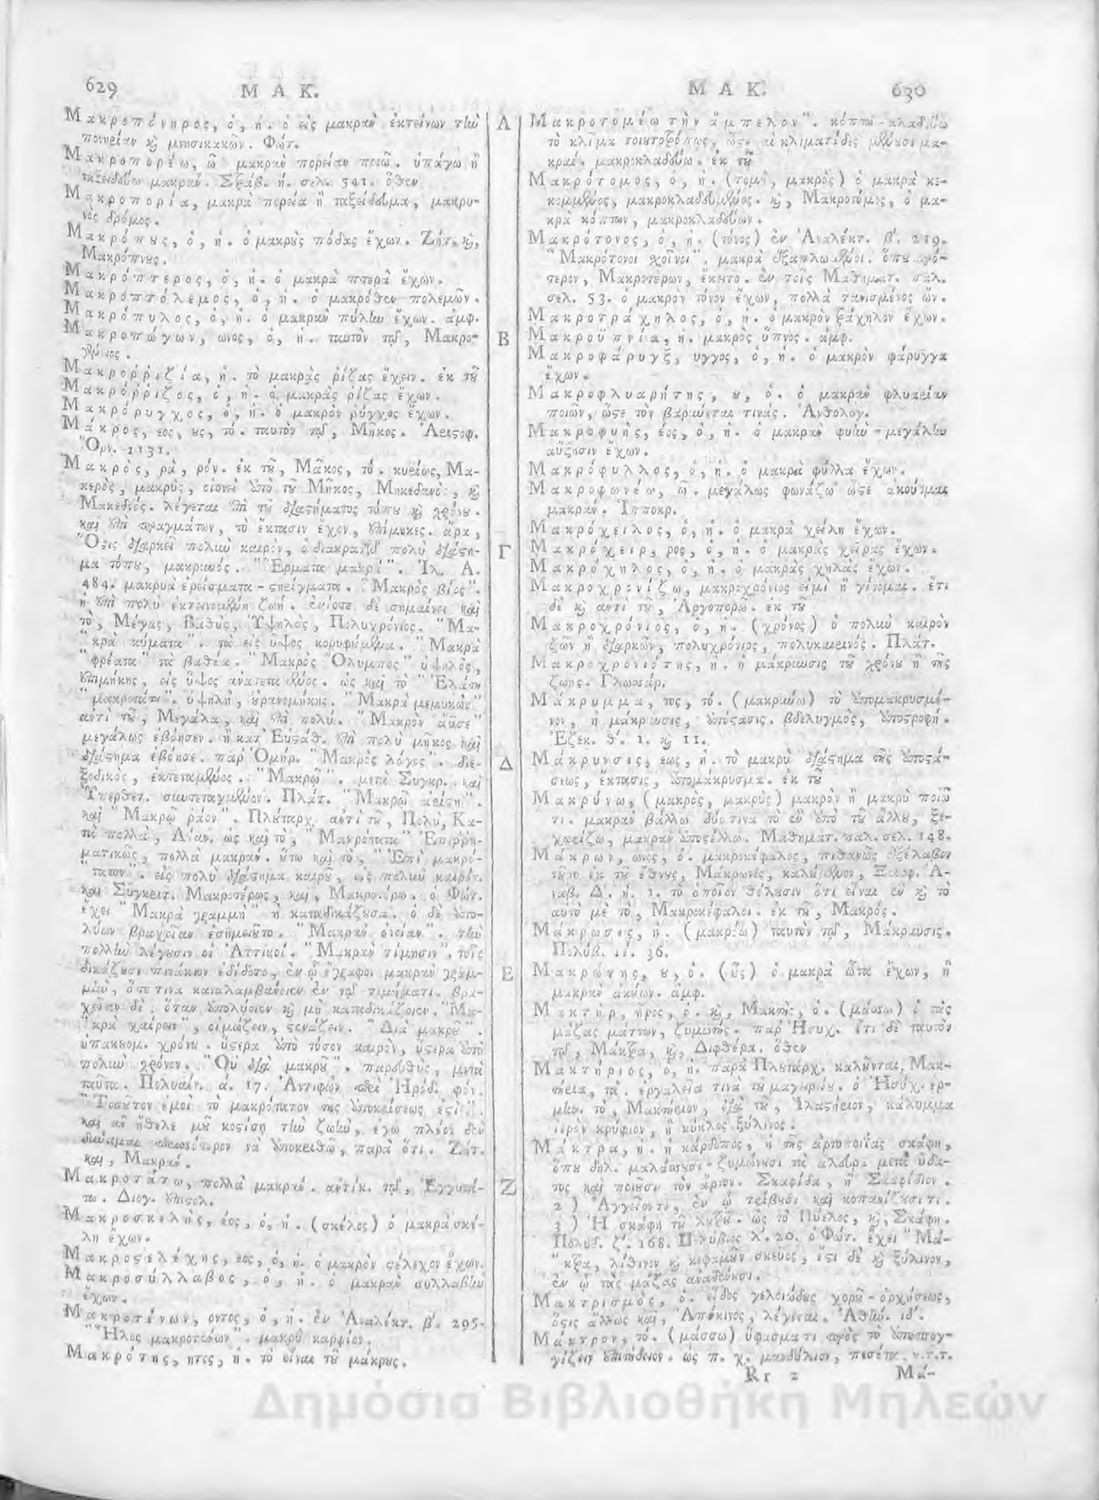 629
Μ Α Κ.
Μακροπόνηρος, ὁ, ἡ. ὁ εἰς μακρὰν ἐκτείνων τὴν
πονηρίαν καὶ μνησικακῶν. Φώτ.
Μακροπορέω, ῶ μακρὰν πορείαν ποιῶ. ὑπάγω ἢ
ταξειδεύω μακράν. Στράβ. η. σελ. 541. ὅθεν
Μακροπορία, μακρὰ πορεία ἢ ταξείδευμα, μακρυ-
νὸς δρόμος.
Μακρόπους, ὁ, ἡ. ὁ μακροὺς πόδας ἔχων. Ζήτ. καὶ,
Μακρόπνους.
Μακρόπτερος, ὁ, ἡ. ὁ μακρὰ πτερὰ ἔχων.
Μακροπτόλεμος, ὁ, ἡ. ὁ μακρόθεν πολεμῶν.
Μακρόπυλος, ὁ, ἡ. ὁ μακρὰν πύλην ἔχων. ἀμφ.
Μακροπώγων, ωνος, ὁ, ἡ. ταυτὸν τῷ, Μακρο-
γένειος.
Μακροῤῥιζία, ἡ. τὸ μακρὰς ῥίζας ἔχειν. ἐκ τοῦ
Μακρόῤῥιζος, ὁ, ἡ. ὁ μακρὰς ῥίζας ἔχων.
Μακρόρυγχος, ὁ, ἡ. ὁ μακρὸν ῥύγχος ἔχων.
Μάκρος, εος, ους, τό. ταυτὸν τῷ, Μῆκος. Ἀριστοφ.
Ὄρν. 1131.
Μακρὸς, ρὰ, ρόν. ἐκ τοῦ, Μᾶκος, τό. κυρίως, Μα-
κερὸς, μακρὺς, οἱονεὶ ἀπὸ τοῦ Μῆκος, Μηκεδανὸς, καὶ
Μακεδνός. λέγεται ἐπὶ τοῦ διαστήματος τόπου καὶ χρόνου.
καὶ ἐπὶ πραγμάτων, τὸ ἔκτασιν ἔχον, ἐπίμηκες. ἄρα,
Ὅστις διαρκεῖ πολὺν καιρὸν, ὁ διακρατῶν πολὺ διάστη-
μα τόπου, μακρινός. "Ἕρματα μακρά". Ἰλ. Α.
484. μακρυὰ ἐρείσματα - στηρίγματα. "Μακρὸς βίος".
ἡ ἐπὶ πολὺ ἐκτεινομένη ζωή. ἐνίοτε δὲ σημαίνει καὶ
τὸ, Μέγας, Βαθὺς, Ὑψηλὸς, Πολυχρόνιος. "Μα-
"κρὰ κύματα". τὰ εἰς ὕψος κορυφούμενα. "Μακρὰ
"φρέατα" τὰ βαθέα. "Μακρὸς Ὄλυμπος" ὑψηλὸς,
ἐπιμήκης, εἰς ὕψος ἀνατεταμένος. ὡς καὶ τὸ "Ἐλάτη
"μακροτάτη". ὑψηλὴ, οὐρανομήκης. "Μακρὰ μεμυκὼς"
ἀντὶ τοῦ, Μεγάλα, καὶ ἐπὶ πολύ. "Μακρὸν ἄϋσε"
μεγάλως ἐβόησεν. ἢ κατ' Εὐστάθ. ἐπὶ πολὺ μῆκος καὶ
διάστημα ἐβόησε. παρ' Ὁμήρ. "Μακρὸς λόγος". διε-
ξοδικὸς, ἐκτεταμένος. "Μακρῷ". μετὰ Συγκρ. καὶ
Ὑπερθετ. συντεταγμένον. Πλάτ. "Μακρῷ ἀρίστη".
καὶ "Μακρῷ ῥᾷον". Πλούταρχ. ἀντὶ τοῦ, Πολὺ, Κα-
τὰ πολλὰ, Λίαν. ὡς καὶ τὸ, "Μακρότατα" Ἐπιῤῥη-
ματικῶς, πολλὰ μακράν. οὕτω καὶ τὸ, "Ἐπὶ μακρό-
τατον". εἰς πολὺ διάστημα καιροῦ, ὡς πολὺν καιρόν.
καὶ Συγκριτ. Μακροτέρως, καὶ, Μακροτέρω. ὁ Φώτ.
ἔχει "Μακρὰ γραμμὴ" ἡ καταδικάζουσα. ὁ δὲ ἀπο-
λύων βραχεῖαν ἐσημειοῦτο.
πολλὴν λέγουσιν οἱ Ἀττικοί. "Μακρὰν τίμησιν". τοῖς
δικάζουσι πινάκιον ἐδίδοτο, ἐν ᾧ ἔγραφον μακρὰν γραμ-
μὴν, ὅτε τινὰ καταλαμβάνοιεν ἐν τῷ τιμήματι. βρα-
χεῖαν δὲ, ὅταν ἀπολύοιεν καὶ μὴ καταδικάζοιεν. "Μα-
"κρὰ χαίρειν", οἰμώζειν, στενάζειν. "Διὰ μακροῦ".
ὑπακουομ. χρόνου. ὕστερα ἀπὸ τόσον καιρὸν, ὕστερα ἀπὸ
πολὺν χρόνον. "Οὐ διὰ μακροῦ". παρευθὺς, μετὰ
ταῦτα. Πολυαίν. α. 17. Ἀντιφῶν περὶ Ἡρώδ. φόν.
"Τοσοῦτον ἐμοὶ τὸ μακρότατον τῆς ὑποκρίσεως ἐστί".
καὶ ἂν ἤθελέ μου κοστίσῃ τὴν ζωὴν, ἐγὼ πλέον δὲν
δύναμαι περισσότερον νὰ ὑποκριθῶ, παρὰ ὅτι. Ζήτ.
καὶ, Μακράν.
Μακροτάτω, πολλὰ μακράν. ἀντίκ. τῷ, Ἐγγυτά-
τω. Διογ. ἐπιστολ.
Μακροσκελὴς, έος, ὁ, ἡ. (σκέλος) ὁ μακρὰ σκέ-
λη ἔχων.
Μακροστελέχης, εος, ὁ, ἡ. ὁ μακρὸν στέλεχον ἔχων.
Μακροσύλλαβος, ὁ, ἡ. ὁ μακρὰν συλλαβὴν
ἔχων.
Μακροτένων, οντος, ὁ, ἡ. ἐν Ἀναλέκτ. β'. 295.
"Ἧλος μακροτένων". μακρὺ καρφίον.
Μακρότης, ητος, ἡ. τὸ εἶναι τοῦ μάκρους.
Α
Β
Γ
Δ
Ε
Ζ
Μ Α Κ.
630
Μακροτομέω τὴν ἄμπελον". κόπτω - κλαδεύω
τὸ κλῆμα τοιουτοτρόπως, ὥστε αἱ κληματίδες μένουσι μα-
κραί. μακροκλαδεύω. ἐκ τοῦ
Μακρότομος, ὁ, ἡ. (τομὴ, μακρὸς) ὁ μακρὰ κε-
κομμένος, μακροκλαδευμένος. καὶ, Μακροτόμος, ὁ μα-
κρὰ κόπτων, μακροκλαδεύων.
Μακρότονος, ὁ, ἡ. (τόνος) ἐν Ἀναλέκτ. β'. 219.
"Μακρότονοι σχοῖνοι". μακρὰ ἐξαπλωμένοι. ὅπου πρό-
τερον, Μακροτέρων, ἔκειτο. ἐν τοῖς Μαθηματ. παλ.
σελ. 53. ὁ μακρὸν τόνον ἔχων, πολλὰ τανισμένος ὤν.
Μακροτράχηλος, ὁ, ἡ. ὁ μακρὸν τράχηλον ἔχων.
Μακροϋπνία, ἡ. μακρὸς ὕπνος. ἀμφ.
Μακροφάρυγξ, υγγος, ὁ, ἡ. ὁ μακρὸν φάρυγγα
ἔχων.
Μακροφλυαρήτης, ου, ὁ. ὁ μακρὰν φλυαρίαν
ποιῶν, ὥστε τὸν βαριῶνται τινάς. Ἀνθολογ.
Μακροφυὴς, έος, ὁ, ἡ. ὁ μακρὰν φυὴν - μεγάλην
αὔξησιν ἔχων.
Μακρόφυλλος, ὁ, ἡ. ὁ μακρὰ φύλλα ἔχων.
Μακροφωνέω, ῶ. μεγάλως φωνάζω ὥστε ἀκούομαι
μακράν. Ἱπποκρ.
Μακρόχειλος, ὁ, ἡ. ὁ μακρὰ χείλη ἔχων.
Μακρόχειρ, ρος, ὁ, ἡ. ὁ μακρὰς χεῖρας ἔχων.
Μακρόχηλος, ὁ, ἡ. ὁ μακρὰς χηλὰς ἔχων.
Μακροχρονίζω, μακροχρόνιος εἰμὶ ἢ γίνομαι. ἔτι
δὲ καὶ ἀντὶ τοῦ, Ἀργοπορῶ. ἐκ τοῦ
Μακροχρόνιος, ὁ, ἡ. (χρόνος) ὁ πολὺν καιρὸν
ζῶν ἢ διαρκῶν, πολυχρόνιος, πολυκαιρινός. Πλάτ.
Μακροχρονιότης, ἡ. ἡ μάκρωσις τοῦ χρόνου ἢ τῆς
ζωῆς. Γλωσσάρ.
Μάκρυμμα, τος, τό. (μακρύνω) τὸ ἀπομακρυσμέ-
νον, ἡ μάκρωσις, ἀπόστασις. βδελυγμὸς, ἀποστροφή.
Ἔζδρ. θ'. 1. καὶ 11.
Μάκρυνσις, εως, ἡ. τὸ μακρὺ διάστημα τῆς ἀποστά-
σεως, ἔκτασις, ἀπομάκρυσμα. ἐκ τοῦ
Μακρύνω, (μακρὸς, μακρὺς) μακρὸν ἢ μακρὺ ποιῶ
τι. μακρὰν βάλλω δύο τινὰ τὸ ἓν ἀπὸ τοῦ ἄλλου, ξε-
χωρίζω, μακρὰν ἀποστέλλω. Μαθηματ. παλ. σελ. 148.
Μάκρων, ωνος, ὁ. μακροκέφαλος, πιθανῶς ἐξέλαβον
τοῦτο ἐκ τοῦ ἔθνους, Μάκρωνες, καλούμενον, Ξενοφ. Ἀ-
ναβ. Δ. η. 1. τὸ ὁποῖον θέλουσιν ὅτι εἶναι ἓν καὶ τὸ
αὐτὸ μὲ τὸ, Μακροκέφαλοι. ἐκ τοῦ, Μακρός.
Μάκρωσις, ἡ. (μακρόω) ταυτὸν τῷ, Μάκρυνσις.
Πολύβ. ιε'. 36.
Μακρώτης, ου, ὁ. (οὖς) ὁ μακρὰ ὦτα ἔχων, ἢ
μακρὰν ἀκούων. ἀμφ.
Μακτὴρ, ῆρος, ὁ. καὶ, Μάκτης, ὁ. (μάσσω) ὁ τὰς
μάζας μάττων, ζυμωτής. παρ' Ἡσυχ. ἔτι δὲ ταυτὸν
τῷ, Μάκτρα, καὶ, Διφθέρα. ὅθεν
Μακτήριος, ὁ, ἡ. παρὰ Πλουτάρχ. καλοῦνται, Μακ-
τήρια, τὰ. ἐργαλεῖα τινὰ τοῦ μαγειρίου. ὁ Ἡσύχ. ἑρ-
μην. τὸ, Μακτήριον, διὰ τοῦ, Ἱλαστήριον, κάλυμμα
ἱερὸν κρύφιον, ἢ κύκλος ξύλινος.
Μάκτρα, ἡ. ἡ κάρδοπος, ἡ τῆς ἀρτοποιΐας σκάφη,
ὅπου δηλ. μαλάσσουσι - ζυμώνουσι τὰ ἄλευρα μετὰ ὕδα-
τος καὶ ποιοῦσι τὸν ἄρτον. Σκαφίδα, ἢ Σκαφίδιον.
2) Ἀγγεῖον τι, ἐν ᾧ τρίβουσι καὶ κοπανίζουσί τι.
3) Ἡ σκάφη τοῦ λουτροῦ. ὡς τὸ Πύελος, καὶ, Σκάφη.
Πολυδ. ζ'. 168. Πολύβιος λ'. 20. ὁ Φώτ. ἔχει "Μά-
"κτρα, λίθινον καὶ κεραμοῦν σκεῦος, ἔστι δὲ καὶ ξύλινον,
ἐν ᾧ τὰς μάζας ἀναδεύουσι.
Μακτρισμὸς, ὁ. εἶδος γελοιώδους χοροῦ - ὀρχήσεως,
ὅστις ἄλλως καὶ, Ἀπόκινος, λέγεται. Ἀθήν. ιδ'.
Μάκτρον, τό. (μάσσω) ὕφασμά τι πρὸς τὸ ἀποσπογ-
γίζειν ἐπιτήδειον. ὡς π. χ. μανδύλιον, πεσέτα. κ.τ.τ.
Rr 2
Μά-
Δημόσια Βιβλιοθήκη Μηλεών